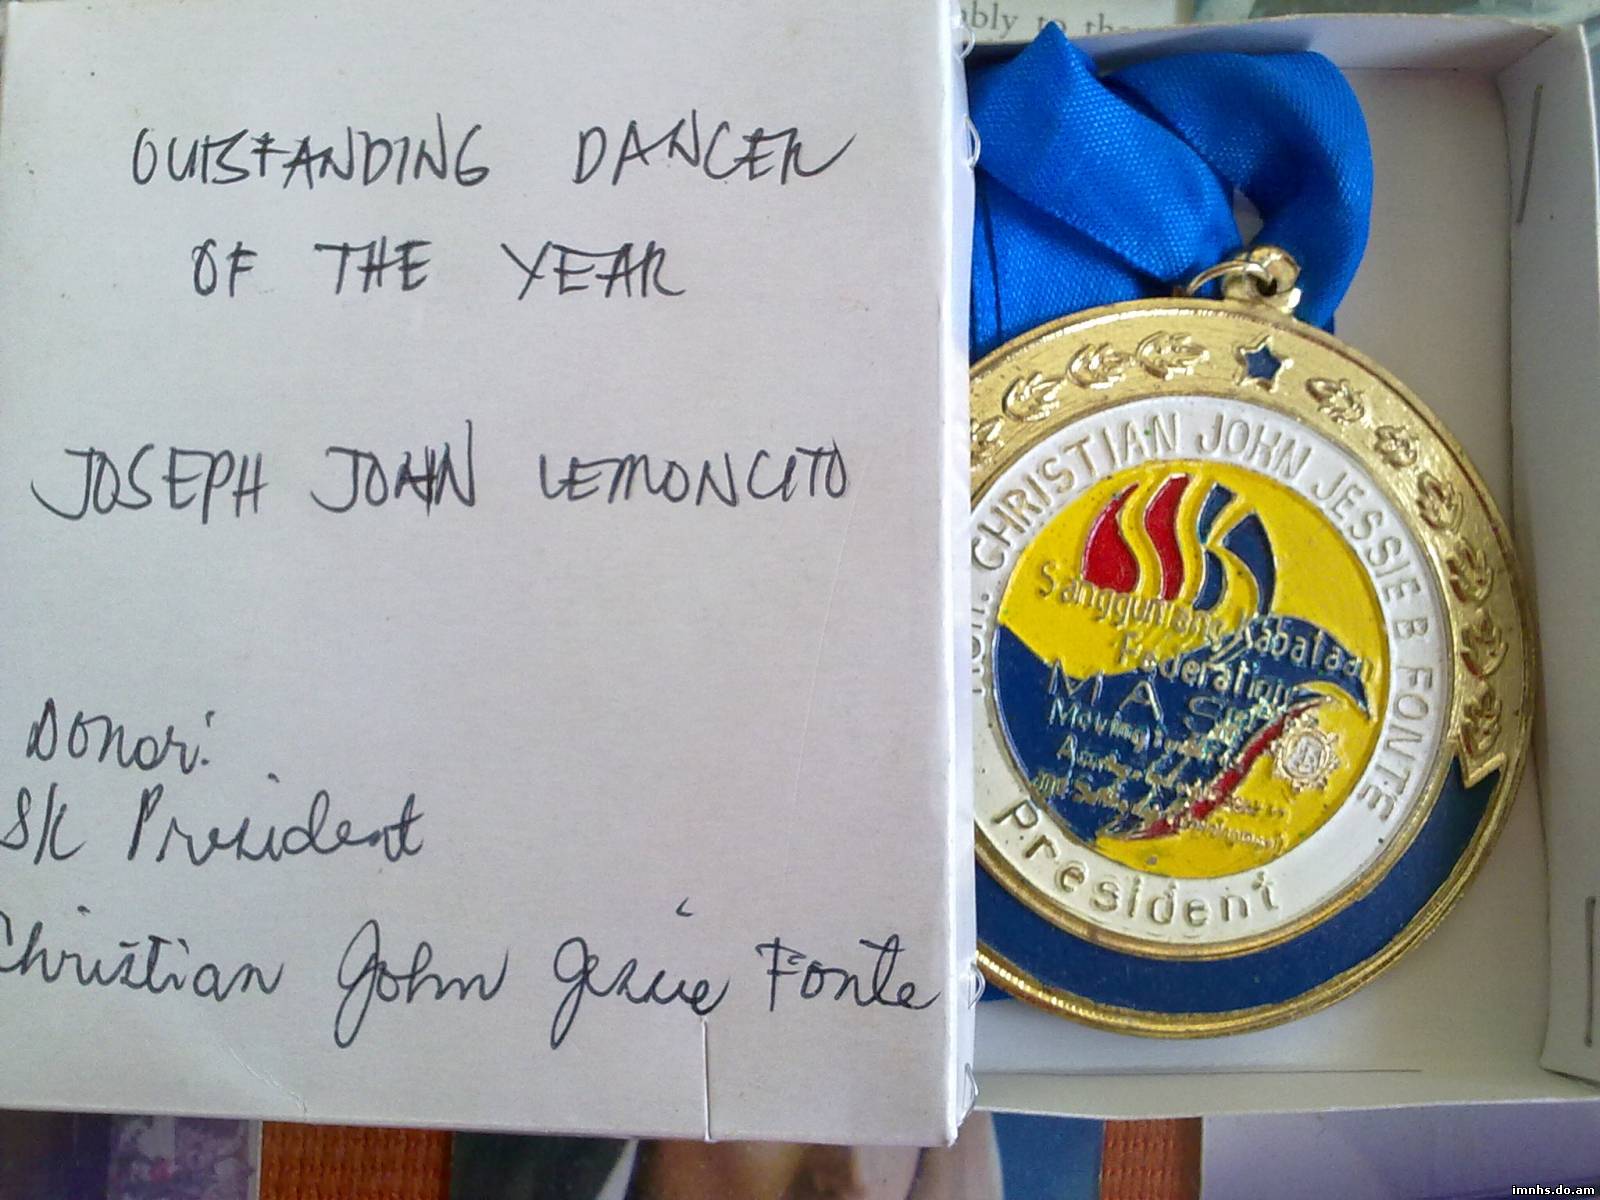 OUTSTANDING DANCER
OF THE YEAR
JOSEPH JOHN LEMONCITO
Donor:
S/K President
Christian John Jessie Fonte
ably to the
Hon. CHRISTIAN JOHN JESSIE B FONTE
SK
Sangguniang Kabataan
Federation
MAS
Moving
President
imnhs.do.am